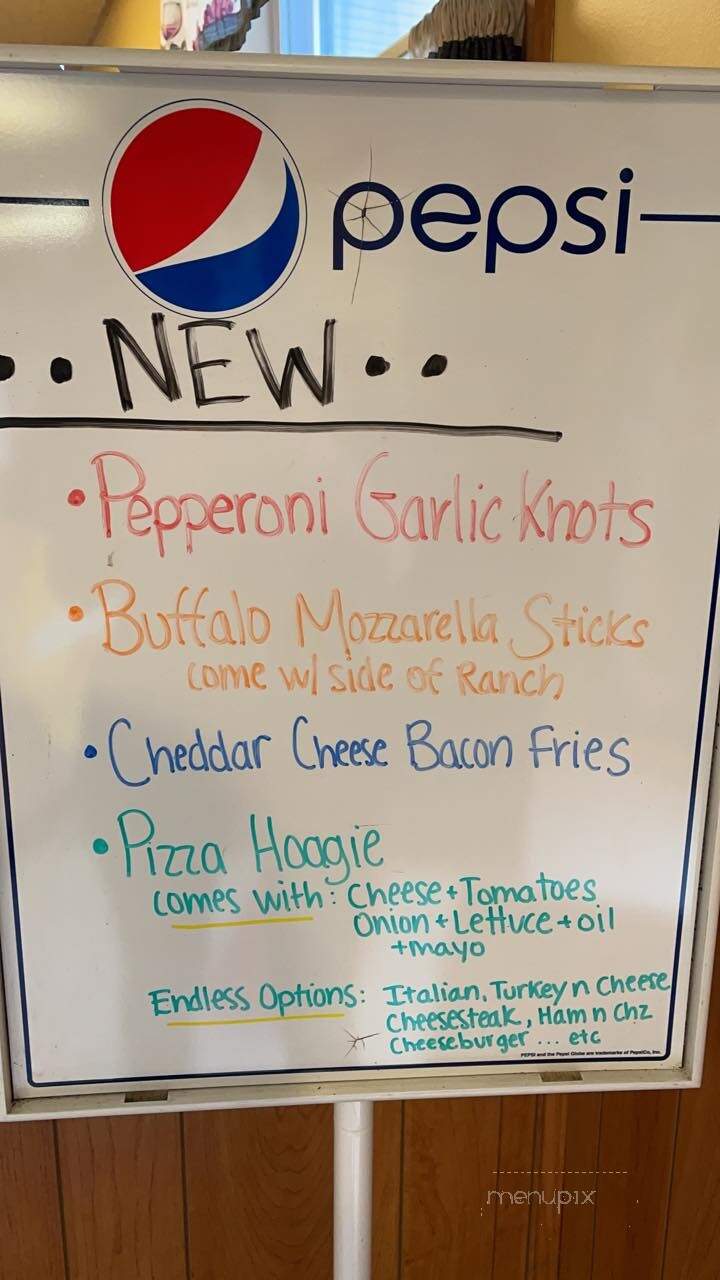 pepsi
••NEW••
• Pepperoni Garlic Knots
• Buffalo Mozzarella Sticks
come w/ side of Ranch
• Cheddar Cheese Bacon Fries
• Pizza Hoagie
comes with: Cheese + Tomatoes
Onion + Lettuce + oil
+ mayo
Endless Options: Italian, Turkey n Cheese
Cheesesteak, Ham n Chz
Cheeseburger ... etc
PEPSI and the Pepsi Globe are trademarks of PepsiCo, Inc.
menupix